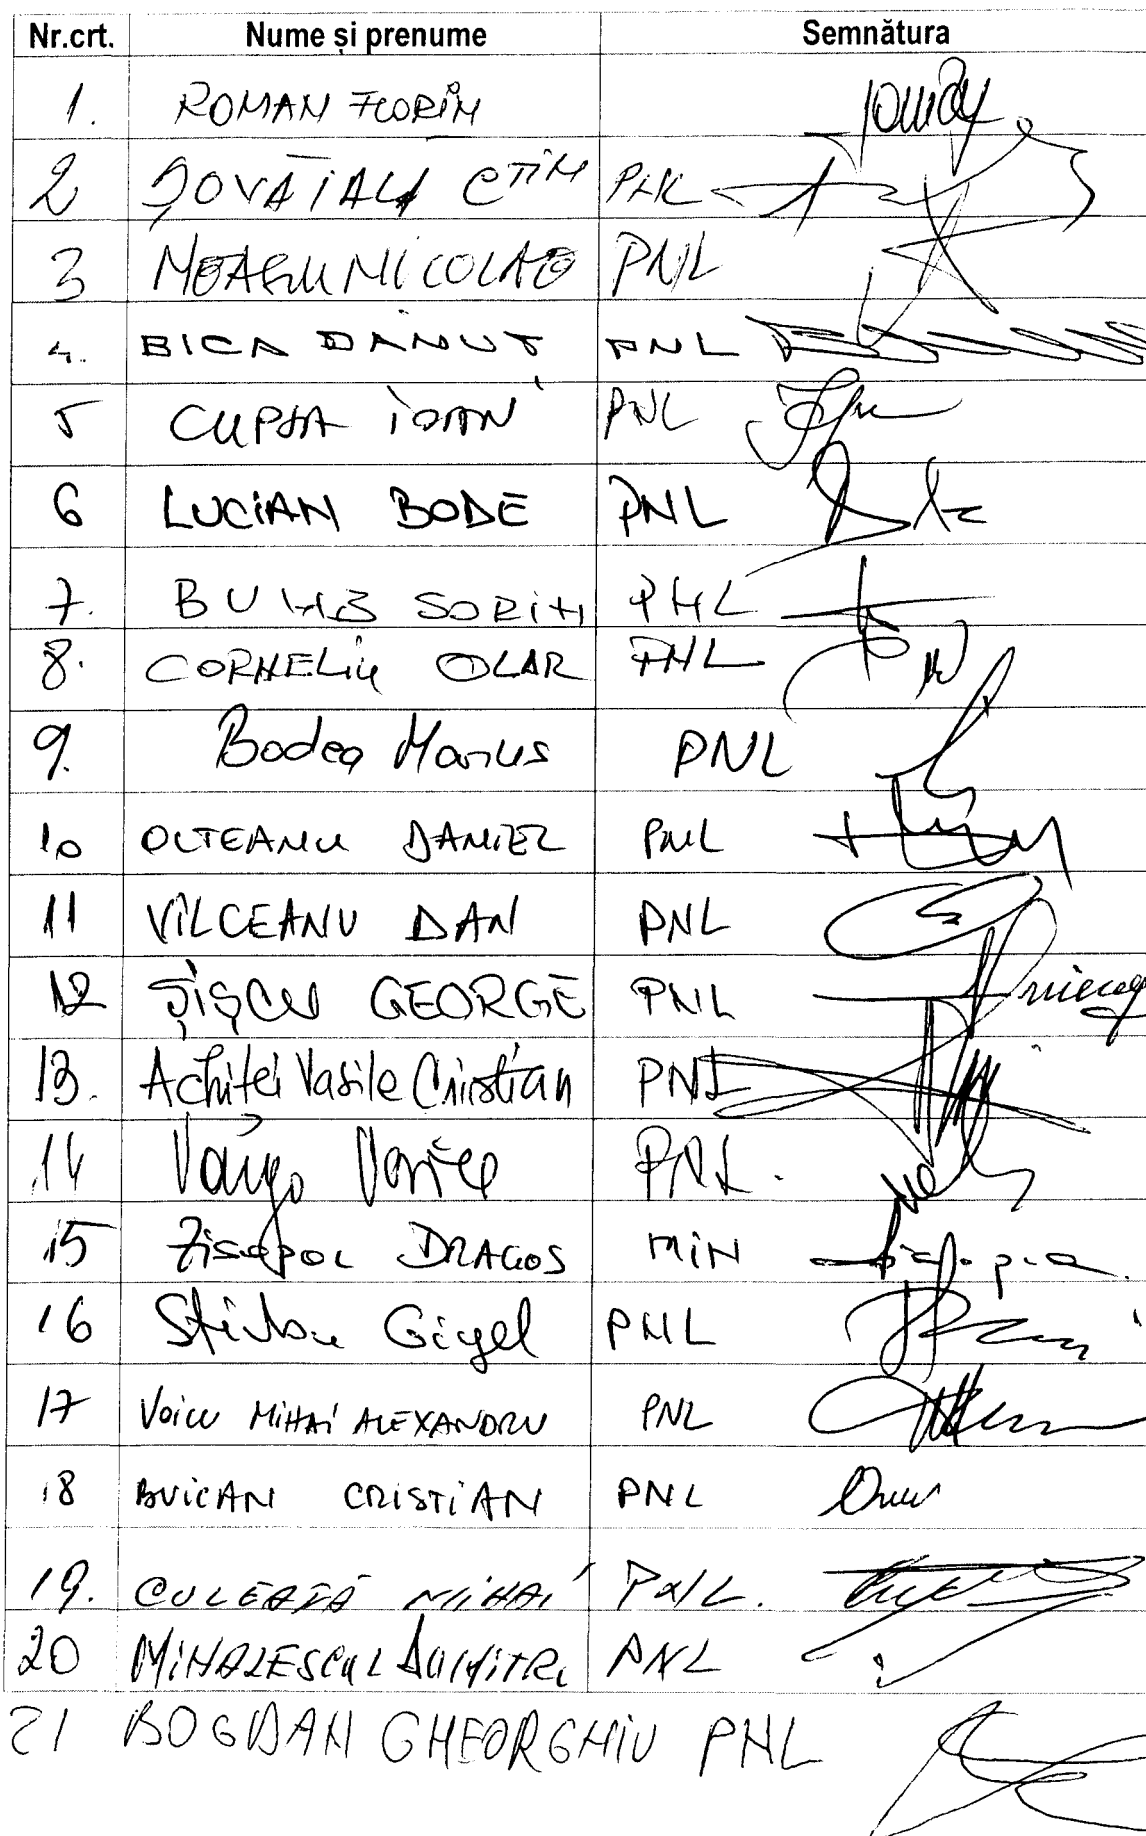 Nr.crt. Nume și prenume Semnătura
1. ROMAN FLORIN
2 ȘOVĂIALĂ CTIN PNL
3 NEAGU NICOLAE PNL
4. BICA DĂNUȚ PNL
5 CUPȘA IOAN PNL
6 LUCIAN BODE PNL
7. BUMB SORIN PNL
8. CORNELIU OLAR PNL
9. Bodea Marius PNL
10 OLTEANU DANIEL PNL
11 VÎLCEANU DAN PNL
12 ȘIȘCU GEORGE PNL
13. Achiței Vasile Cristian PNL
14 Varga Vasile PNL.
15 Zisopol DRAGOS MIN
16 Știrbu Gigel PNL
17 Voicu MIHAI ALEXANDRU PNL
18 BUICAN CRISTIAN PNL
19. CULEAFĂ MIHAI PNL.
20 MIHALESCUL DUMITRU PNL
21 BOGDAN GHEORGHIU PNL